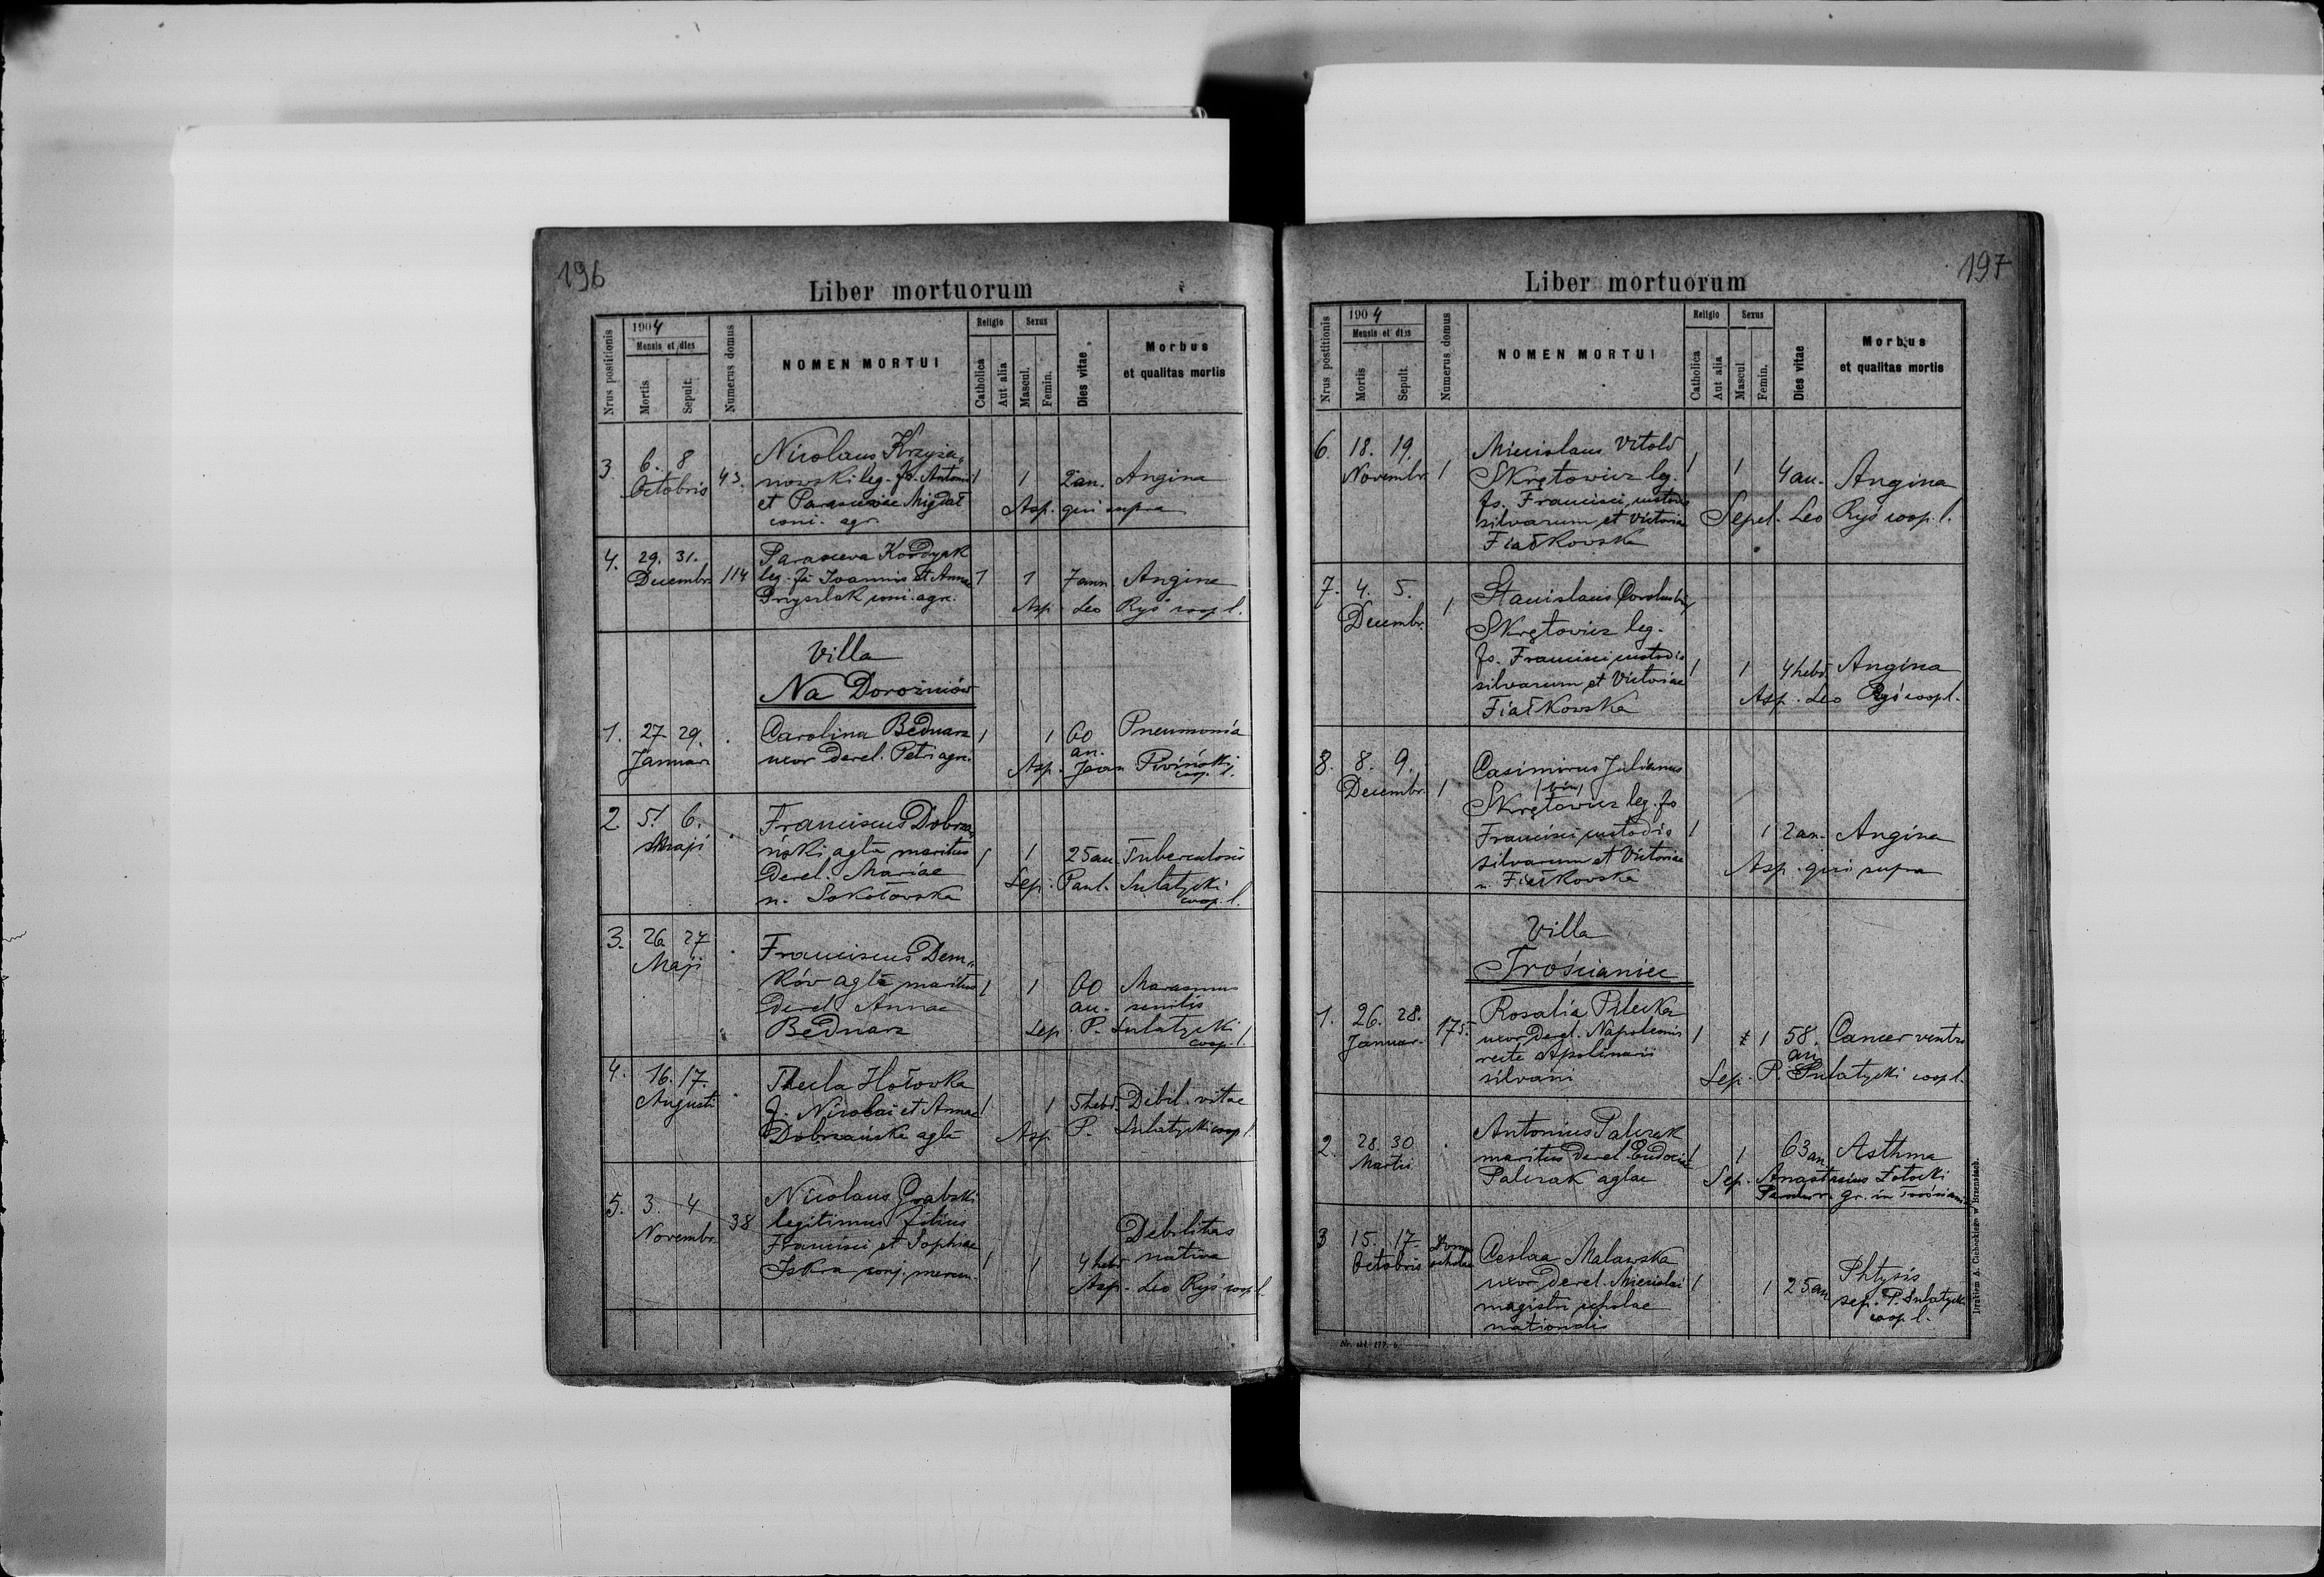 196
Liber mortuorum
Nrus postitionis
1904
Mensis et dies
Mortis
Sepult.
Numerus domus
NOMEN MORTUI
Religio
Catholica
Aut alia
Sexus
Mascul.
Femin.
Dies vitae
Morbus
et qualitas mortis
3. 6. 8 Octobris 43.
Nicolaus Krzyża„
nowski leg. fs. Antonii
et Parascevae Migdał
coni. agr.
1 1 2 an. Angina
Asp. qui supra
4. 29. 31. Decembr. 114
Parasceva Kordyak
leg. fa Joannis et Annae
Przyszlak coni. agr.
1 1 7 ann. Angina
Asp. Leo Ryś coop. l.
Villa
Na Dorożniów
1. 27 29. Januar.
Carolina Bednarz
uxor derel. Petri agri.
1 1 60 an. Pneumonia
Asp. Joan. coop. l.
2 5. 6. Maji
Franciscus Dobrza„
ński agta maritus
derel. Mariae
n. Sokołowska
1 1 25 an. Tuberculosis
Sep. Paul. Sulatycki
coop. l.
3. 26 27 Maji
Franciscus Dem„
ków agta maritus
derel. Annae
Bednarz
1 1 60 an. Marasmus
senilis
Sep. P. Sulatycki
coop. l.
4. 16. 17. Augusti
Thecla Hołowka
f. Nicolai et Annae
Dobrzańska agta
1 1 5 hebd. Debil. vitae
Asp. P. Sulatycki coop. l.
5. 3. 4 Novembr. 38
Nicolaus Grabski
legitimus filius
Francisci et Sophiae
Iskra conj. mercen.
1 1 4 hebd. Debilitas
nativa
Asp. Leo Ryś coop. l.
197
Liber mortuorum
Nrus postitionis
1904
Mensis et dies
Mortis
Sepult.
Numerus domus
NOMEN MORTUI
Religio
Catholica
Aut alia
Sexus
Mascul
Femin.
Dies vitae
Morbus
et qualitas mortis
6. 18. 19. Novembr. 1
Miecislaus Vitold
Skrętowicz leg.
fs. Francisci custodis
silvarum et Victoriae
Fiałkowska
1 1 4 an. Angina
Sepel. Leo Ryś coop. l.
7. 4. 5. Decembr. 1
Stanislaus
Skrętowicz leg.
fs. Francisci custodis
silvarum et Victoriae
Fiałkowska
1 1 4 hebd. Angina
Asp. Leo Ryś coop l.
8. 8. 9. Decembr. 1
Casimirus Julianus
Skrętowicz leg. fs
Francisci custodis
silvarum et Victoriae
n. Fiałkowska
1 1 2 an. Angina
Asp. qui supra
Villa
Trościaniec
1. 26. 28. Januar. 175.
Rosalia Pilecka
uxor derel. Napoleonis
recte Apolinarii
silvani
1 1 58. an. Cancer ventris
Sep. P. Sulatycki coop l.
2. 28 30 Martii
Antonius Palczak
maritus derel. Eudociae
Palczak agtae
1 1 63 an. Asthma
Sep. Anastasius
gr. in Trościaniec
3 15. 17. Octobris Domus scholae
Ceslaa Malawska
uxor derel. Miecislai
magistri scholae
nationalis
1 1 25 an. Phtysis
sep. P. Sulatycki
coop l.
Drukiem A. Cichockiego w Brzeżanach.